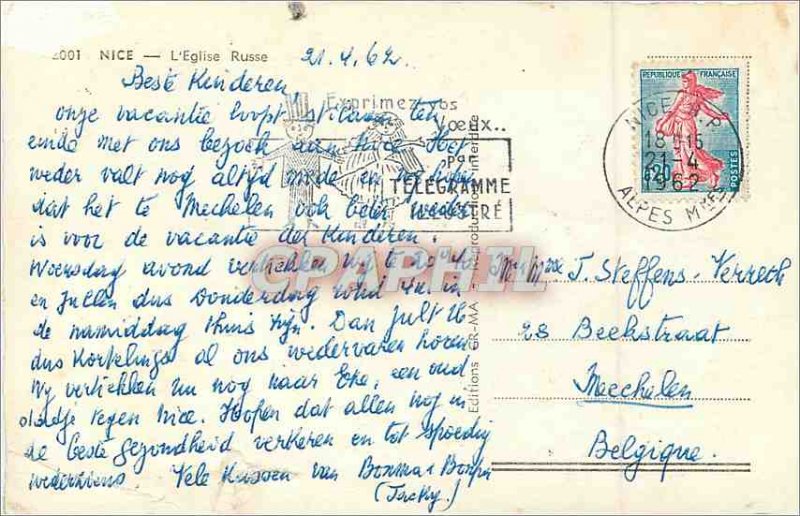 2001 NICE — L'Eglise Russe
21.4.62.
Beste Kinderen
onze vacantie loopt stilaan ten
einde met ons bezoek aan Nice. Het
weder valt nog altijd mede en wy hopen
dat het te Mechelen ook beter weder
is voor de vacantie der Kinderen.
Woensdag avond vertrekken wy te 20
en zullen dus Donderdag rond in
de namiddag thuis zyn. Dan zult gy
dus Kortelings al ons wedervaren horen
Wy vertrekken nu nog naar Eze, een oud
stadje tegen Nice. Hopen dat allen nog in
de beste gezondheid verkeren en tot spoedig
wederziens. Vele Kussen van Bonma & Bonpa
(Jacky.)
Exprimez vos
voeux..
par
TÉLÉGRAMME
ILLUSTRÉ
Editions GR-MA — Reproduction interdite
CPAPHIL
REPUBLIQUE FRANÇAISE
0,20
POSTES
NICE R.P.
18 H 15
21-4
1962
ALPES Mmes
Mr Mme J. Steffens-Verreth
28 Beekstraat
Mechelen
Belgique.